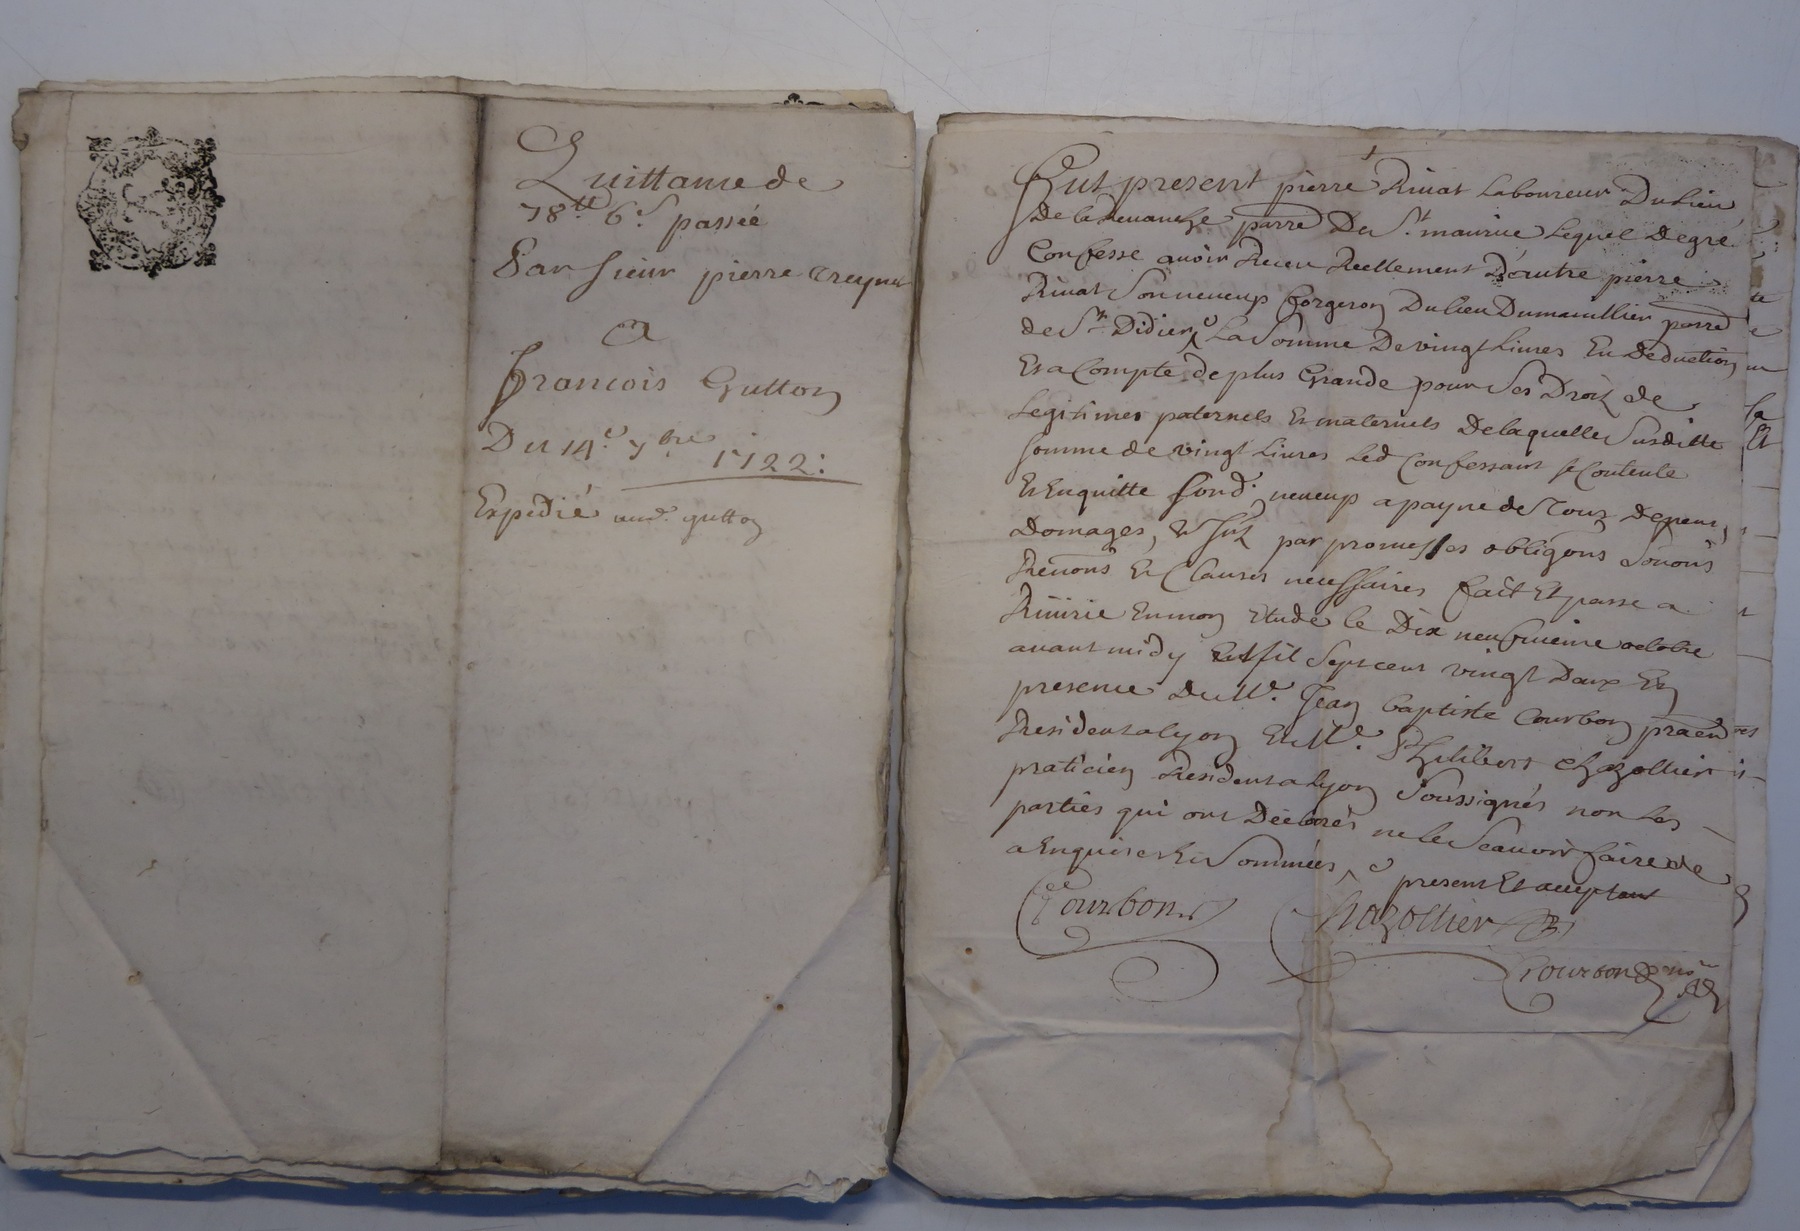 Quittance de
78ᵗᵗ 6ˢ passée
Par sieur pierre
A
francois Gutton
Du 14ᵉ 7ᵇʳᵉ 1722:
Expedié aud. gutton
fut present pierre Rivat Laboureur Du Lieu
De la Revanche parre De Sᵗ. maurice Lequel De gré
Confesse avoir Receu Reellement D'autre pierre
Rivat Son neveup forgeron Du lieu Dumarullier parre
de Sᵗ. Didier ^ La Somme De vingt Livres En Deduction
Et a Compte de plus Grande pour Ses Droit de
Legitimes paternels Et maternels De laquelle Susditte
somme de vingt Livres Led Confessant se Contente
Et En quitte sond. neveup a payne de Tour Depens,
Domages, & Jnt par promesses obligons
Renons Et Clauses necessaires fait Et passe a
Rivirie En mon Etude le Dix neufvieme octobre
avant midy mil Sept cent vingt Deux En
presence de Mᵉ. Jean baptiste Courbon
Resident a lyon Et Mᵉ. Philibert Chazottier
praticien Resident a lyon Soussignés non Les
parties qui ont Declarés ne le Scavoir faire de
a Enquises Et Sommées, ^ present Et acceptant
Courbon
Chazottier
Courbon